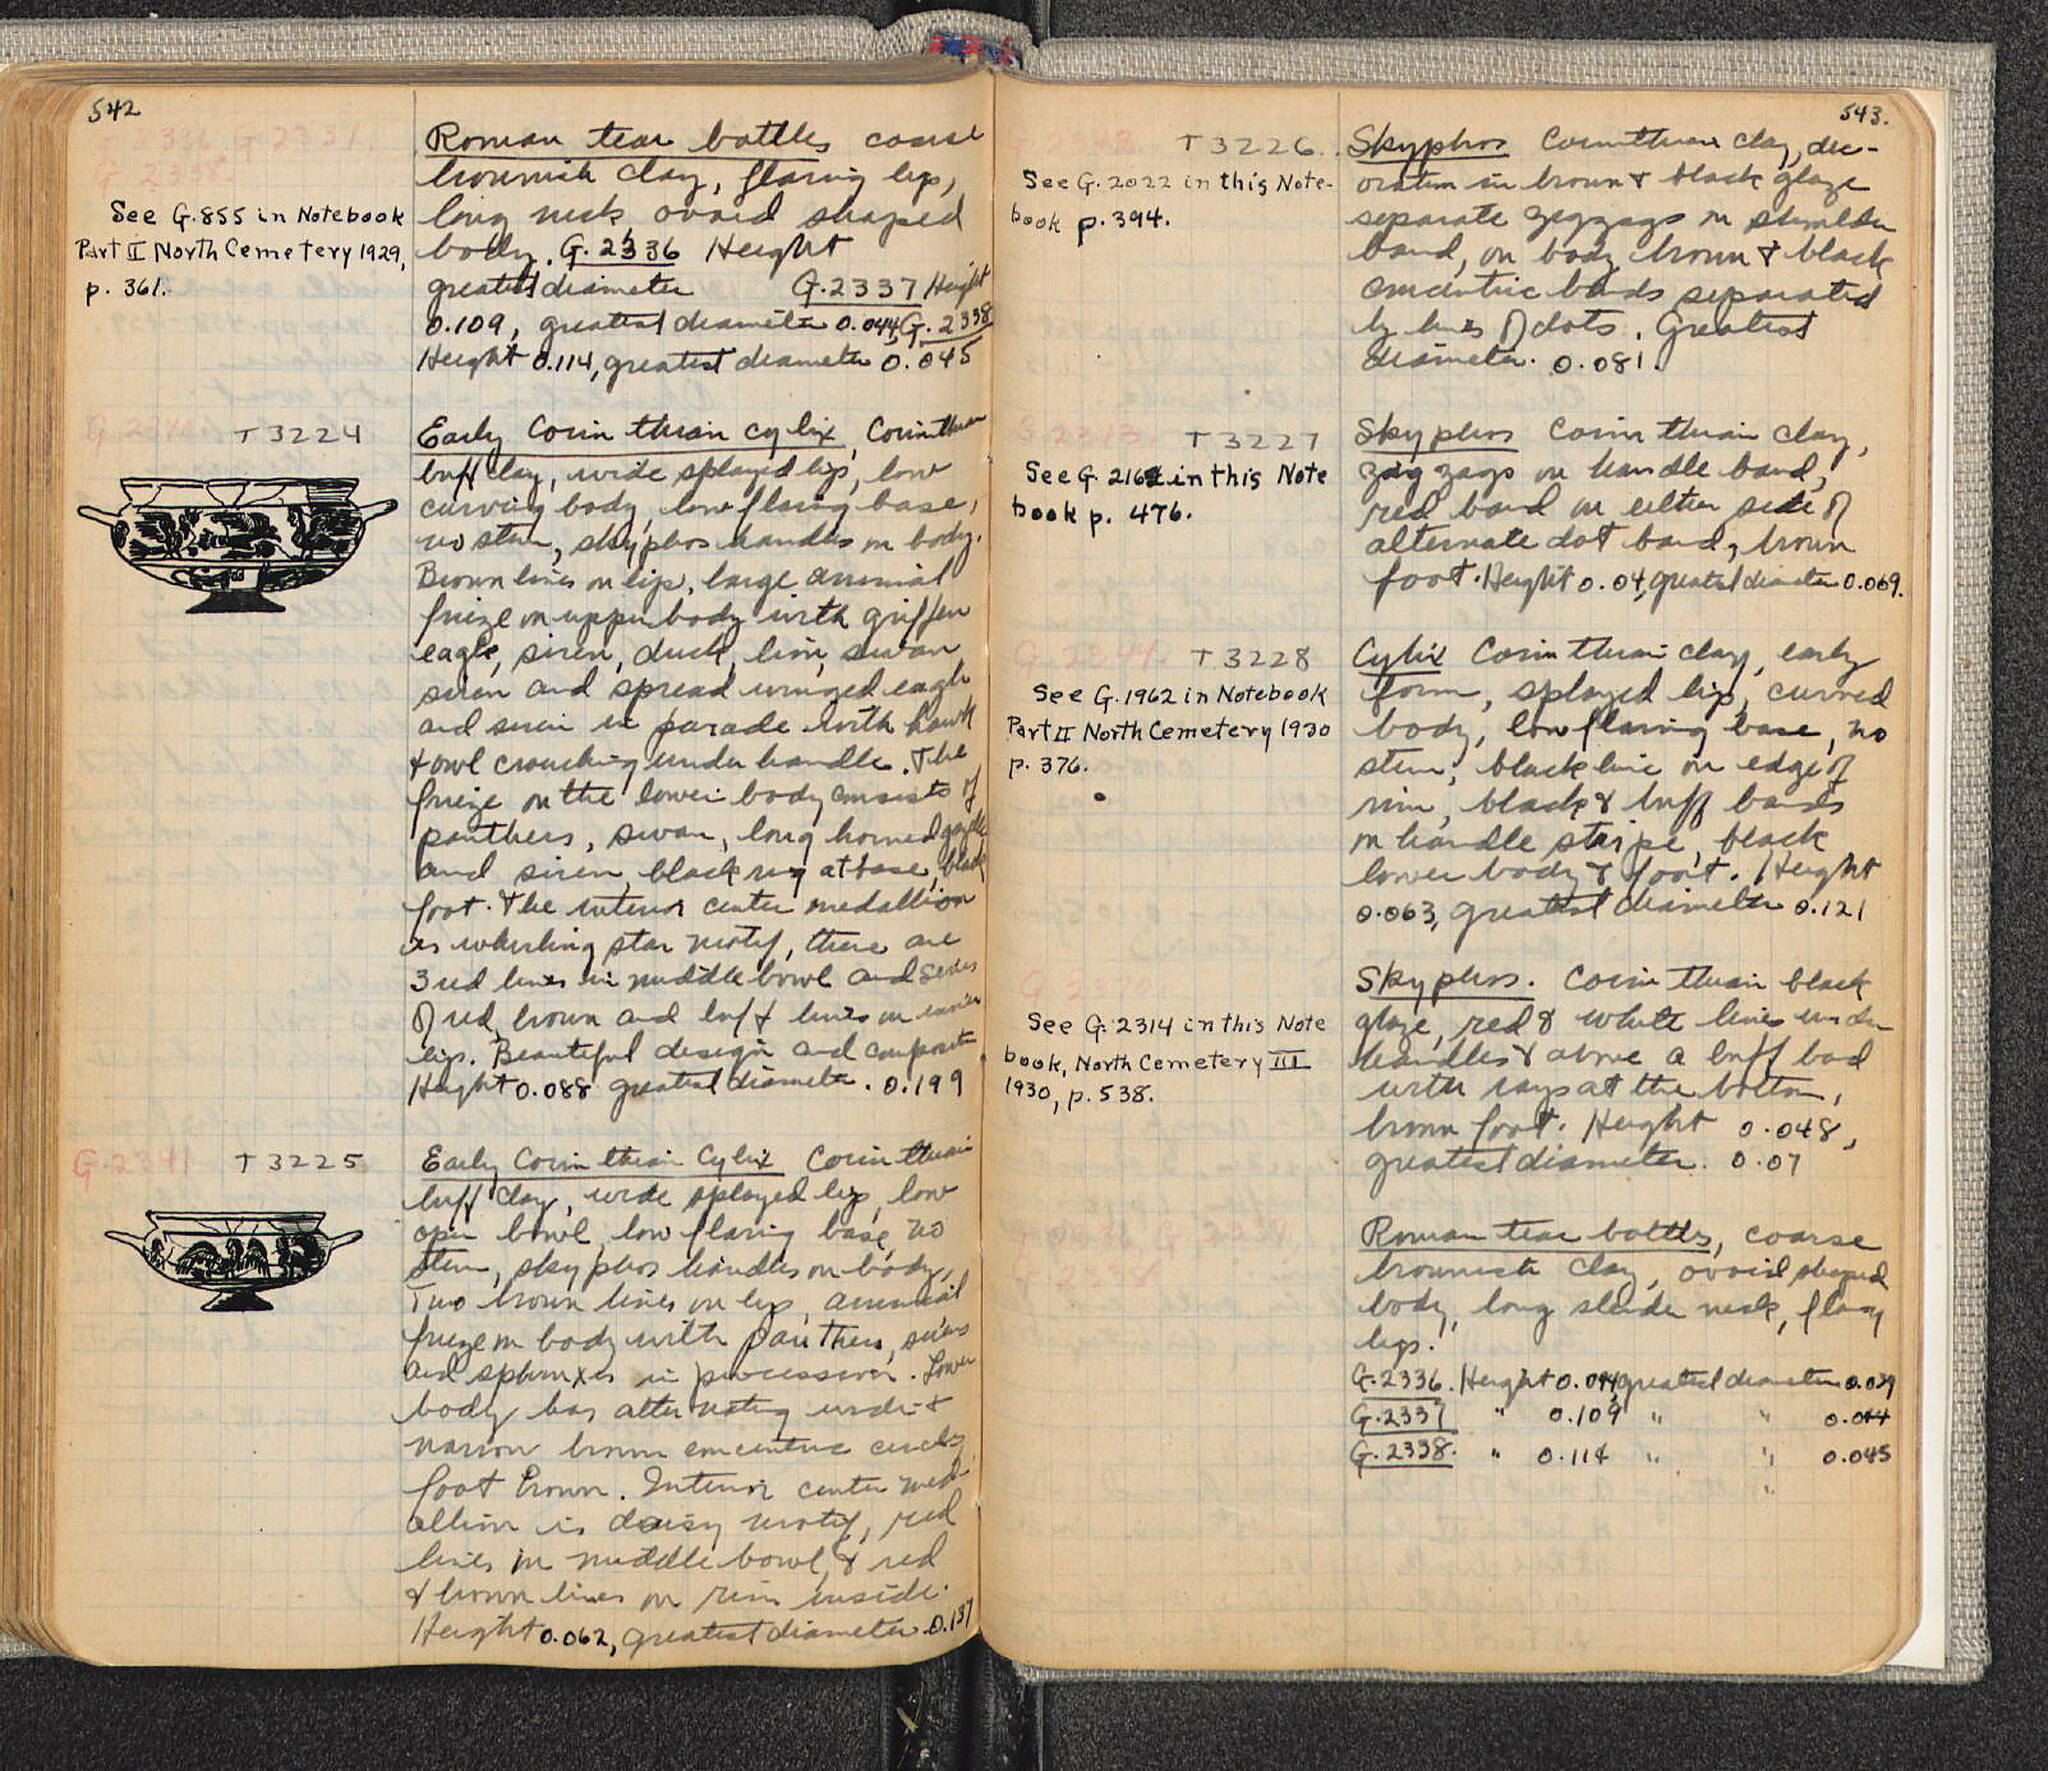 542
G. 2336 G. 2337.
G. 2338.
See G. 855 in Notebook
Part II North Cemetery 1929,
p. 361.
Roman tear bottles coarse
brownish clay, flaring lip,
long neck ovoid shaped
body. G. 2336 Height
greatest diameter G. 2337 Height
0.109, greatest diameter 0.044, G. 2338
Height 0.114, greatest diameter 0.045
T 3224
Early Corinthian cylix, Corinthian
buff clay, wide splayed lip, low
curving body, low flaring base,
no stem, skyphos handles on body.
Brown lines on lip, large animal
frieze on upper body with griffen
eagle, siren, duck, lion, swan
siren and spread winged eagle
and siren in parade with hawk
& owl crouching under handle. The
frieze on the lower body consists of
panthers, swan, long horned gazelle
and siren, black ring at base, black
foot. The interior center medallion
is whirling star motif, there are
3 red lines in middle bowl and series
of red, brown and buff lines on interior
lip. Beautiful design and composition
Height 0.088 greatest diameter. 0.199
G. 2341 T 3225
Early Corinthian Cylix Corinthian
buff clay, wide splayed lip, low
open bowl, low flaring base, no
stem, skyphos handles on body,
Two brown lines on lip, animal
frieze on body with panthers, sirens
and sphinxes in procession. Lower
body has alternating wide &
narrow brown concentric circles,
foot brown. Interior center med-
allion is daisy motif, red
lines in middle bowl, & red
& brown lines on rim inside.
Height 0.062, greatest diameter. 0.137
543.
T 3226.
See G. 2022 in this Note-
book p. 394.
Skyphos Corinthian clay, dec-
oration in brown & black glaze
separate zigzags on shoulder
band, on body brown & black
concentric bands separated
by lines of dots. Greatest
diameter. 0.081.
G. 2343 T 3227
See G. 2162 in this Note
book p. 476.
Skyphos Corinthian clay,
zig zags on handle band,
red band on either side of
alternate dot band, brown
foot. Height 0.04, greatest diameter 0.069.
T 3228
See G. 1962 in Notebook
Part II North Cemetery 1930
p. 376.
Cylix Corinthian clay, early
form, splayed lip, curved
body, low flaring base, no
stem, black line on edge of
rim, black & buff bands
on handle stripe, black
lower body & foot. Height
0.063, greatest diameter 0.121
See G. 2314 in this Note
book, North Cemetery III
1930, p. 538.
Skyphos. Corinthian black
glaze, red & white lines under
handles & above a buff bad
with rays at the bottom,
brown foot. Height 0.048,
greatest diameter. 0.07
Roman tear bottles, coarse
brownish clay, ovoid shaped
body, long slender neck, flaring
lips.
G. 2336. Height greatest diameter
G. 2337 " 0.109 " " 0.044
G. 2338. " 0.114 " " 0.045
"